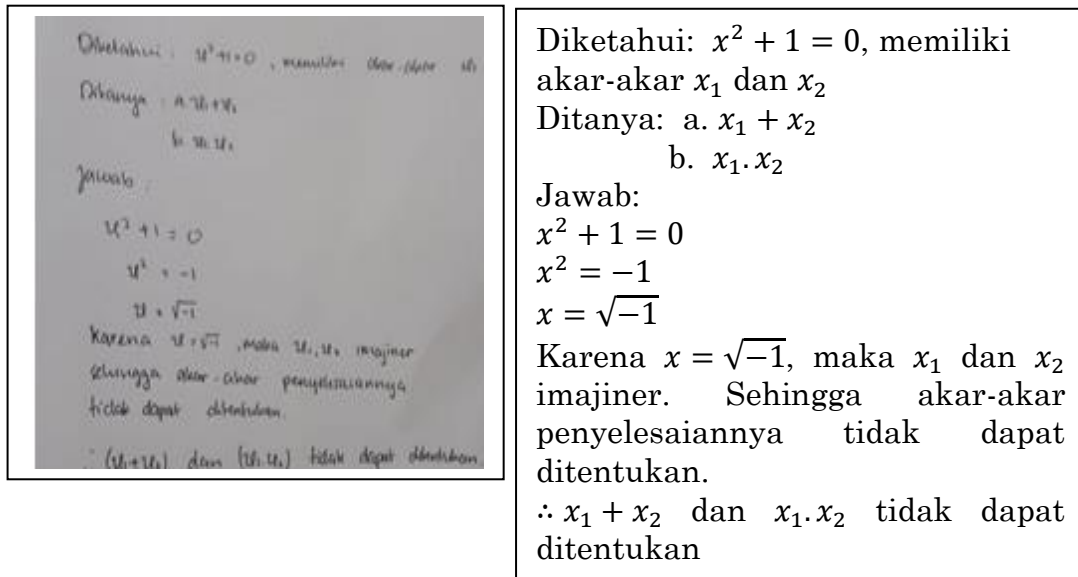 Diketahui: x²+1=0, memiliki akar-akar x₁
Ditanya: a. x₁+x₂
b. x₁.x₂
Jawab:
x²+1=0
x² = -1
x = √-1
Karena x=√-1, maka x₁, x₂ imajiner
sehingga akar-akar penyelesaiannya
tidak dapat ditentukan.
∴ (x₁+x₂) dan (x₁.x₂) tidak dapat ditentukan
Diketahui: x² + 1 = 0, memiliki
akar-akar x₁ dan x₂
Ditanya: a. x₁ + x₂
b. x₁.x₂
Jawab:
x² + 1 = 0
x² = −1
x = √−1
Karena x = √−1, maka x₁ dan x₂
imajiner. Sehingga akar-akar
penyelesaiannya tidak dapat
ditentukan.
∴ x₁ + x₂ dan x₁.x₂ tidak dapat
ditentukan